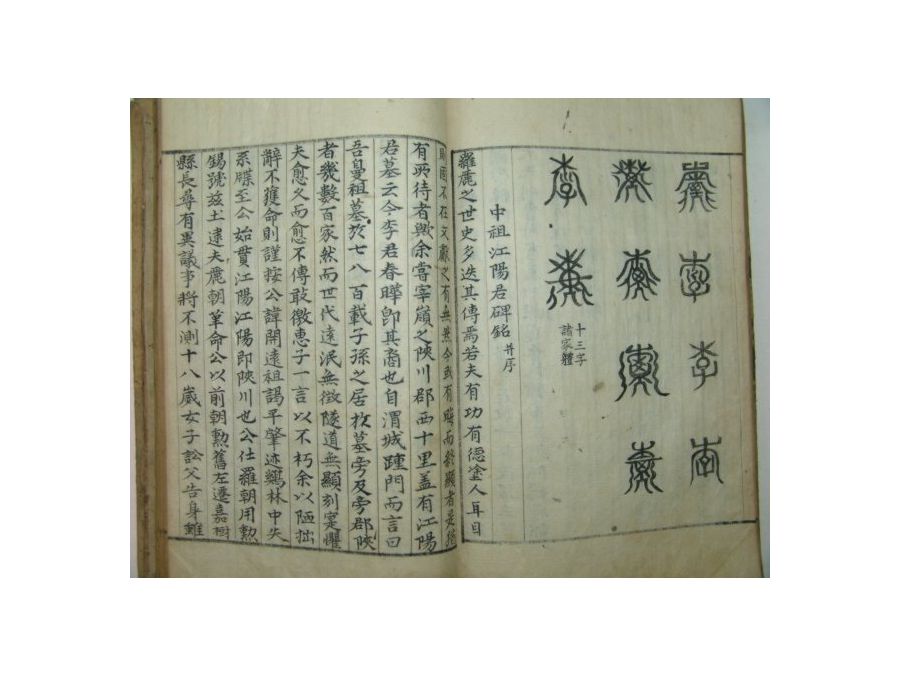 李
李
李
十三字
諸家體
中祖江陽君碑銘 并序
羅麗之世史多迭其傳焉若夫有功有德塗人耳目
不在文獻之有無然今或有晦而終顯者是
有所待者歟余嘗宰嶺之陜川郡西十里盖有江陽
君墓云今李君春曄卽其裔也自渭城踵門而言曰
吾皇祖墓於七八百載子孫之居於墓旁及旁郡陜
者幾數百家然而世代遠泯無徵隧道無顯刻寔懼
夫愈久而愈不傳敢徼惠子一言以不朽余以陋拙
辭不獲命則謹按公諱開遠祖謁平肇迹鷄林中失
系牒至公始貫江陽江陽即陜川也公仕羅朝用勲
錫號玆土逮夫麗朝革命公以前朝勲舊左遷嘉樹
縣長尋有異議事將不測十八歲女子訟父告身雖